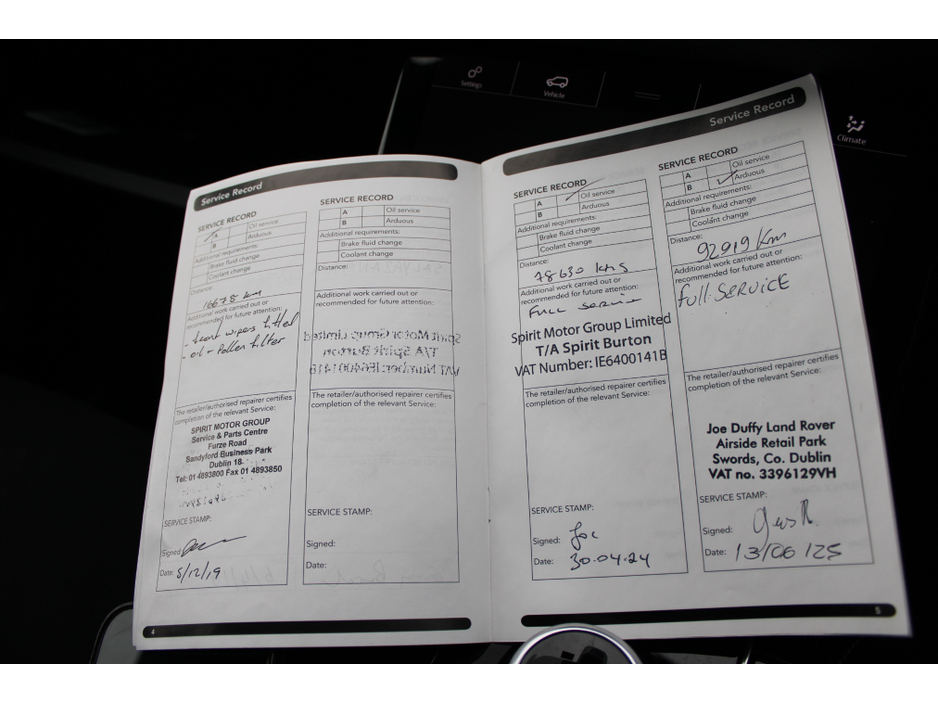 Settings
Vehicle
Climate
Service Record
SERVICE RECORD
A
Oil service
B
Arduous
Additional requirements:
Brake fluid change
Coolant change
Distance:
16678 km
Additional work carried out or
recommended for future attention:
- front wipers fitted
- oil + Pollen filter
The retailer/authorised repairer certifies
completion of the relevant Service:
SPIRIT MOTOR GROUP
Service & Parts Centre
Furze Road
Sandyford Business Park
Dublin 18.
Tel: 01 4893800 Fax 01 4893850
SERVICE STAMP:
Signed
Date: 5/12/19
4
SERVICE RECORD
A
Oil service
B
Arduous
Additional requirements:
Brake fluid change
Coolant change
Distance:
Additional work carried out or
recommended for future attention:
The retailer/authorised repairer certifies
completion of the relevant Service:
SERVICE STAMP:
Signed:
Date:
Service Record
SERVICE RECORD
A
Oil service
B
Arduous
Additional requirements:
Brake fluid change
Coolant change
Distance:
78630 kms
Additional work carried out or
recommended for future attention:
FULL Service
Spirit Motor Group Limited
T/A Spirit Burton
VAT Number: IE6400141B
The retailer/authorised repairer certifies
completion of the relevant Service:
SERVICE STAMP:
Signed:
Date: 30.04.24
SERVICE RECORD
A
Oil service
B
Arduous
Additional requirements:
Brake fluid change
Coolant change
Distance:
92919 Km
Additional work carried out or
recommended for future attention:
Full SERVICE
The retailer/authorised repairer certifies
completion of the relevant Service:
Joe Duffy Land Rover
Airside Retail Park
Swords, Co. Dublin
VAT no. 3396129VH
SERVICE STAMP:
Signed:
Date: 13/06/25
5